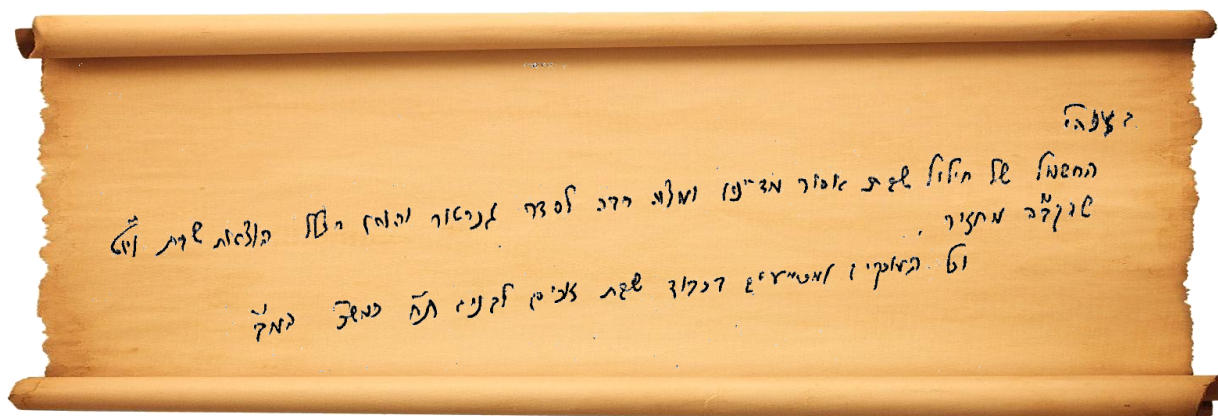 בעזהי
החשמל של חילול שבת אסור מדינא ומצוה רבה לסדר גנרטור והוהן בכלל הוצאות שבת ויו"ט
שהקב"ה מחזיר
וכל העוסקים ומסייעים בכבוד שבת זוכים לבניי